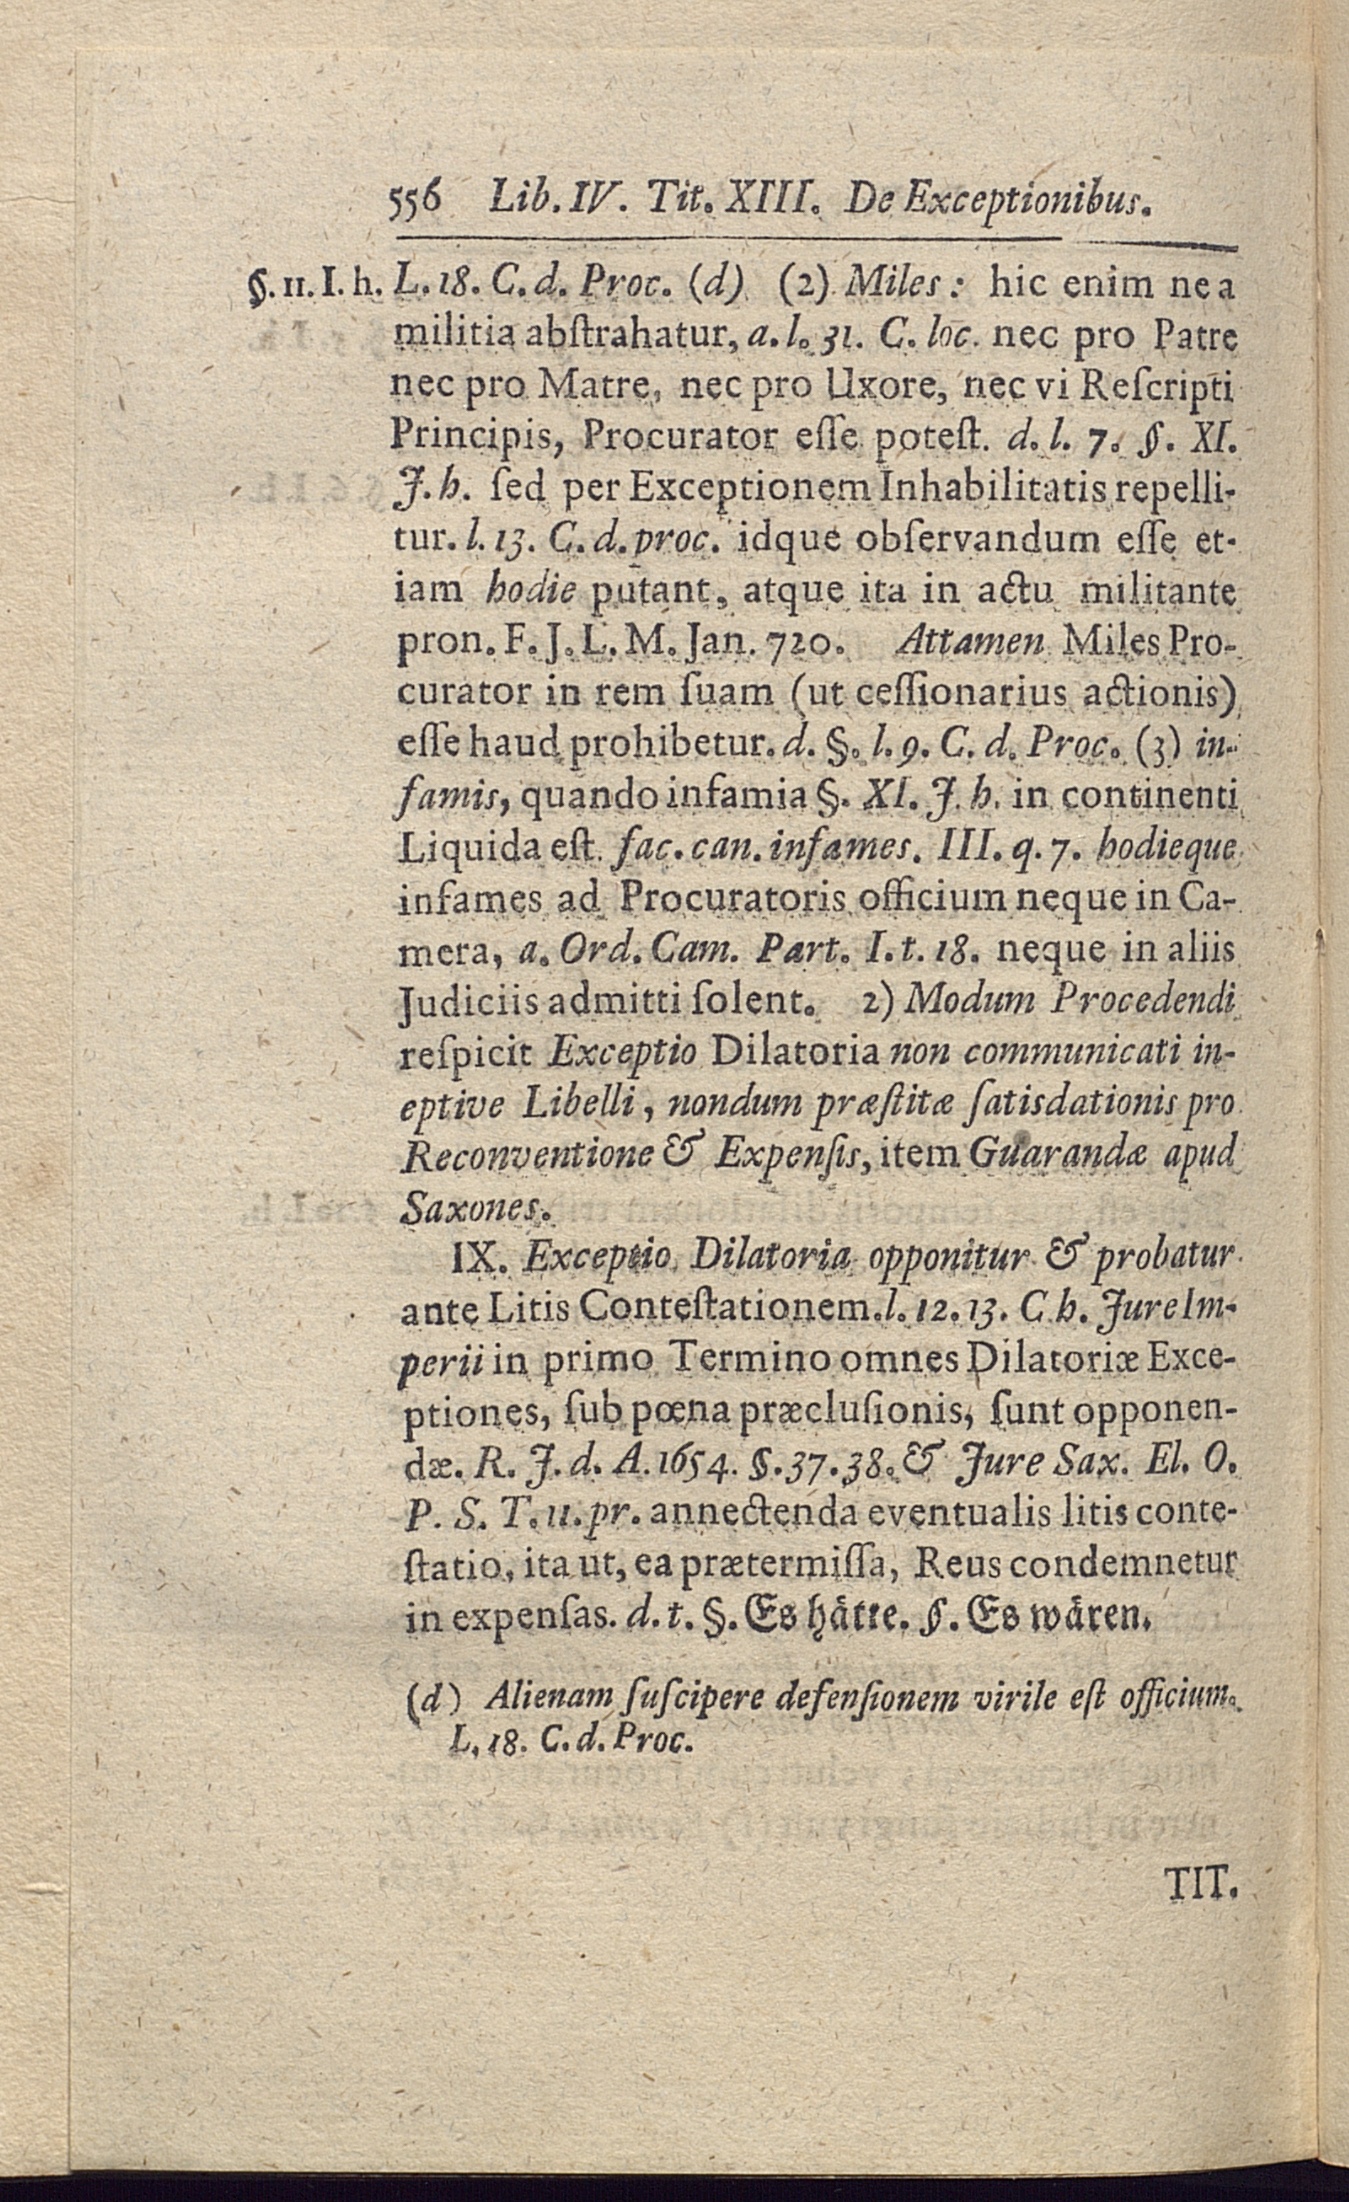 556 Lib. IV. Tit. XIII. De Exceptionibus.
§. 11. I. h. L. 18. C. d. Proc. (d) (2) Miles: hic enim ne a
militia abſtrahatur, a. l. 31. C. loc. nec pro Patre
nec pro Matre, nec pro Uxore, nec vi Reſcripti
Principis, Procurator eſſe poteſt. d. l. 7. §. XI.
J. h. ſed per Exceptionem Inhabilitatis repelli-
tur. l. 13. C. d. proc. idque obſervandum eſſe et-
iam hodie putant, atque ita in actu militante
pron. F. J. L. M. Jan. 720. Attamen Miles Pro-
curator in rem ſuam (ut ceſſionarius actionis)
eſſe haud prohibetur. d. §. l. 9. C. d. Proc. (3) in-
famis, quando infamia §. XI. J. h. in continenti
Liquida eſt. fac. can. infames. III. q. 7. hodieque
infames ad Procuratoris officium neque in Ca-
mera, a. Ord. Cam. Part. I. t. 18. neque in aliis
Judiciis admitti ſolent. 2) Modum Procedendi
reſpicit Exceptio Dilatoria non communicati in-
eptive Libelli, nondum præſtitæ ſatisdationis pro
Reconventione & Expenſis, item Guarandæ apud
Saxones.
IX. Exceptio Dilatoria opponitur & probatur
ante Litis Conteſtationem. l. 12. 13. C. h. Jure Im-
perii in primo Termino omnes Dilatoriæ Exce-
ptiones, ſub pœna præcluſionis, ſunt opponen-
dæ. R. J. d. A. 1654. §. 37. 38. & Jure Sax. El. O.
P. S. T. 11. pr. annectenda eventualis litis conte-
ſtatio, ita ut, ea prætermiſſa, Reus condemnetur
in expenſas. d. t. §. Es hätte. §. Es wären.
(d) Alienam ſuſcipere defenſionem virile eſt officium.
L. 18. C. d. Proc.
TIT.